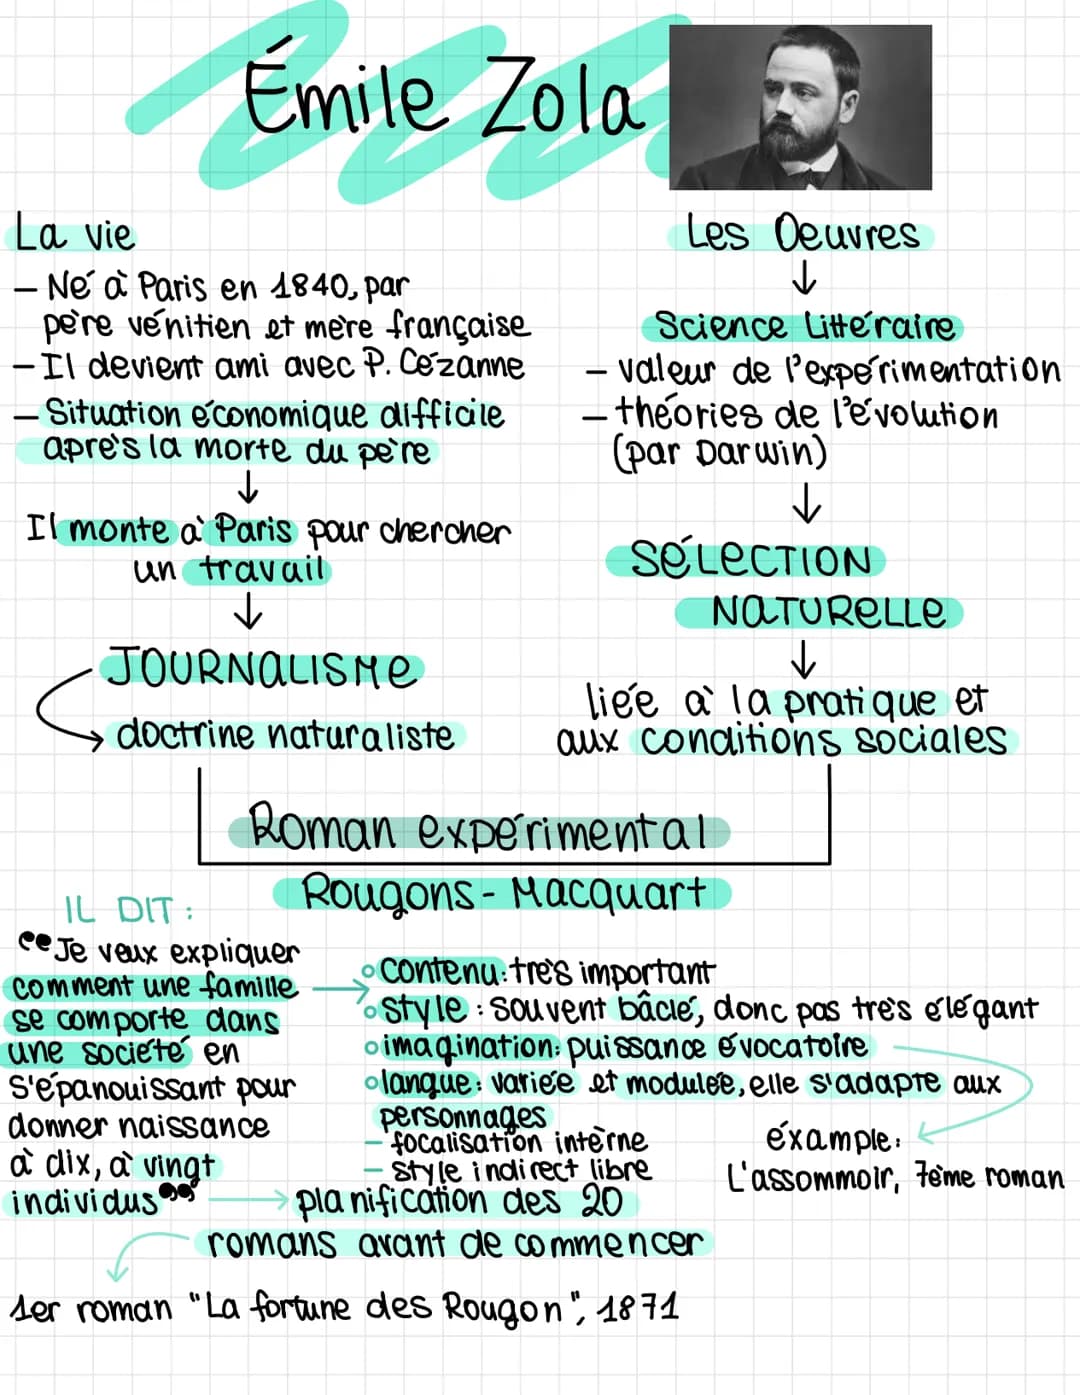 Émile Zola
La vie
- Né à Paris en 1840, par
père vénitien et mère française
- Il devient ami avec P. Cézanne
- Situation économique difficile
après la morte du père
↓
Il monte à Paris pour chercher
un travail
↓
JOURNALISME
doctrine naturaliste
Les Oeuvres
↓
Science Littéraire
- valeur de l'expérimentation
- théories de l'évolution
(par Darwin)
↓
SÉLECTION
NATURELLE
↓
liée à la pratique et
aux conditions sociales
Roman expérimental
Rougons-Macquart
IL DIT:
"Je veux expliquer
comment une famille
se comporte dans
une société en
s'épanouissant pour
donner naissance
à dix, à vingt
individus"
contenu: très important
style: souvent bâclé, donc pas très élégant
imagination: puissance évocatoire
langue: variée et modulée, elle s'adapte aux
personnages
- focalisation interne
- style indirect libre
éxample:
L'assommoir, 7ème roman
planification des 20
romans avant de commencer
1er roman "La fortune des Rougon", 1871